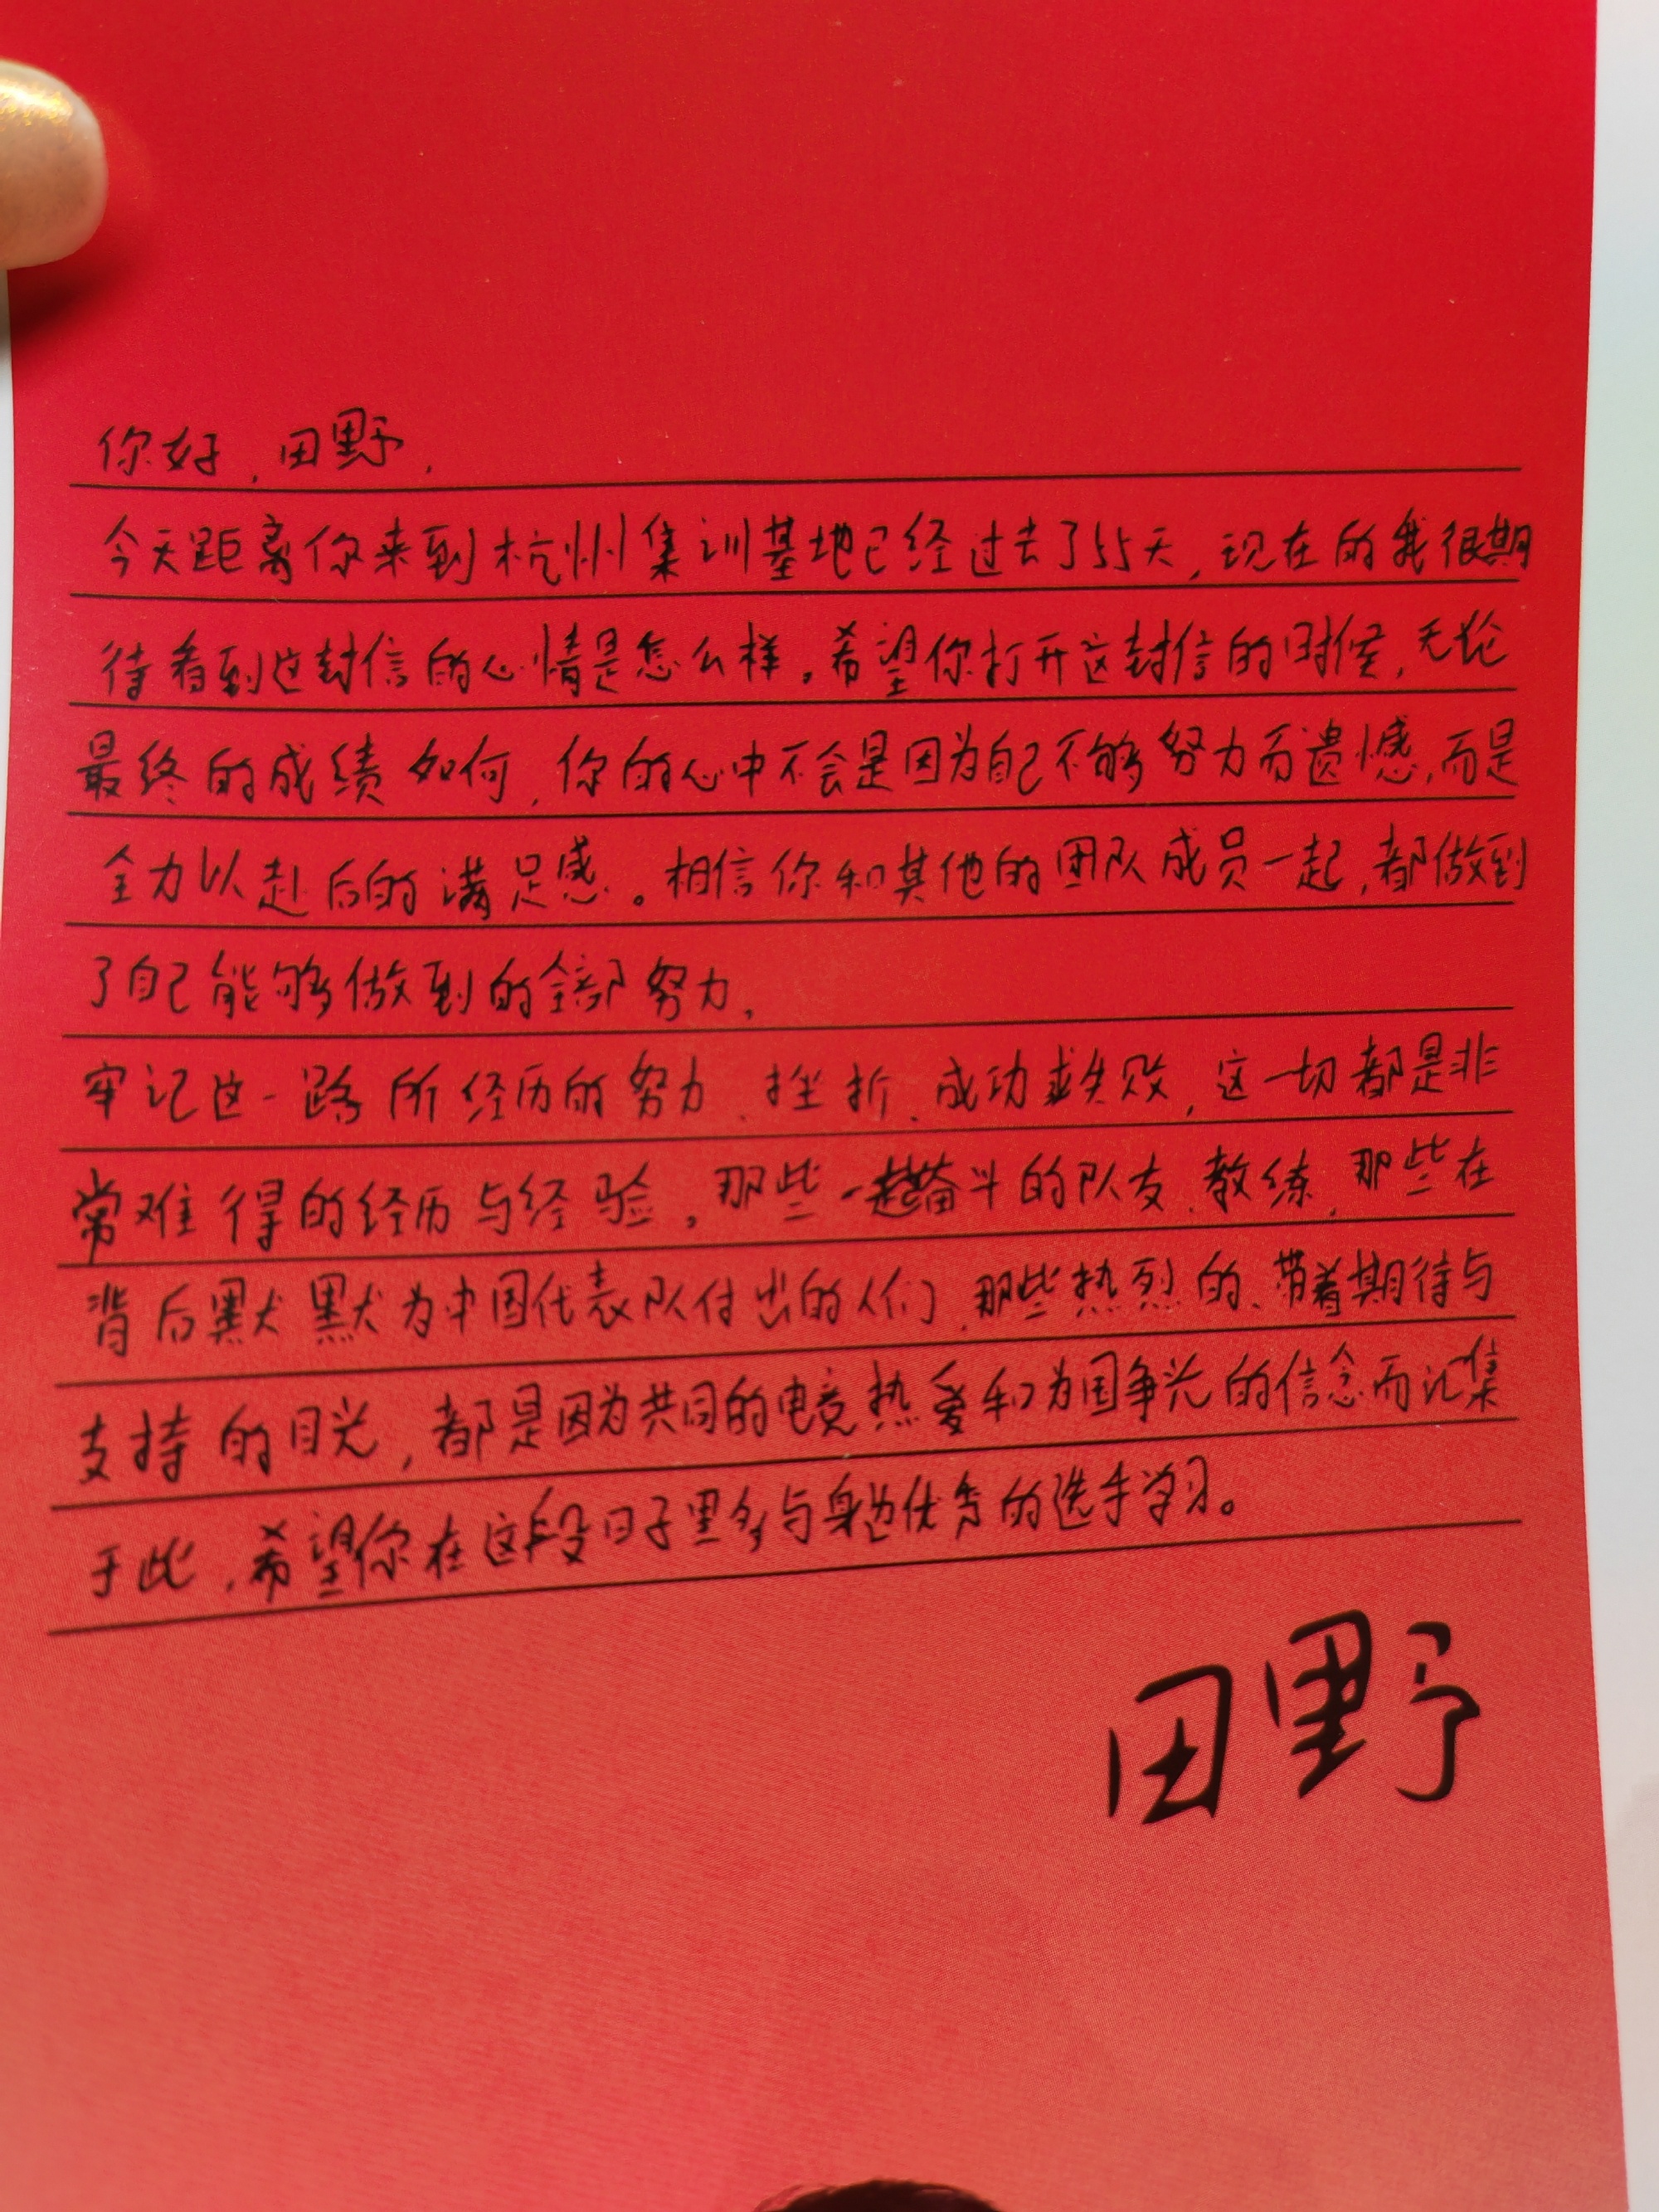 你好,田野,
今天距离你来到杭州集训基地已经过去了55天,现在的我很期
待看到这封信的心情是怎么样。希望你打开这封信的时候,无论
最终的成绩如何,你的心中不会是因为自己不够努力而遗憾,而是
全力以赴后的满足感。相信你和其他的团队成员一起,都做到
了自己能够做到的全部努力,
牢记这一路所经历的努力、挫折、成功或失败,这一切都是非
常难得的经历与经验。那些一起奋斗的队友、教练,那些在
背后默默为中国代表队付出的人们,那些热烈的、带着期待与
支持的目光,都是因为共同的电竞热爱和为国争光的信念而汇集
于此,希望你在这段日子里多与身边优秀的选手学习。
田野